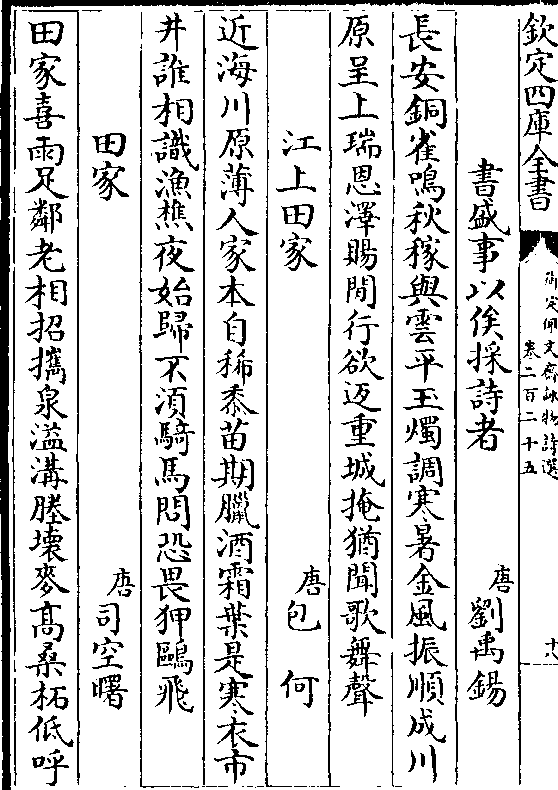 欽定四庫全書
御定佩文齋詠物詩選
卷二百二十五
十八
書盛事以俟採詩者
唐劉禹錫
長安銅雀鳴秋稼與雲平玉燭調寒暑金風振順成川
原呈上瑞恩澤賜閒行欲返重城掩猶聞歌舞聲
江上田家
唐包何
近海川原薄人家本自稀黍苗期臘酒霜葉是寒衣市
井誰相識漁樵夜始歸不須騎馬問恐畏狎鷗飛
田家
唐司空曙
田家喜雨足鄰老相招攜泉溢溝塍壞麥高桑柘低呼